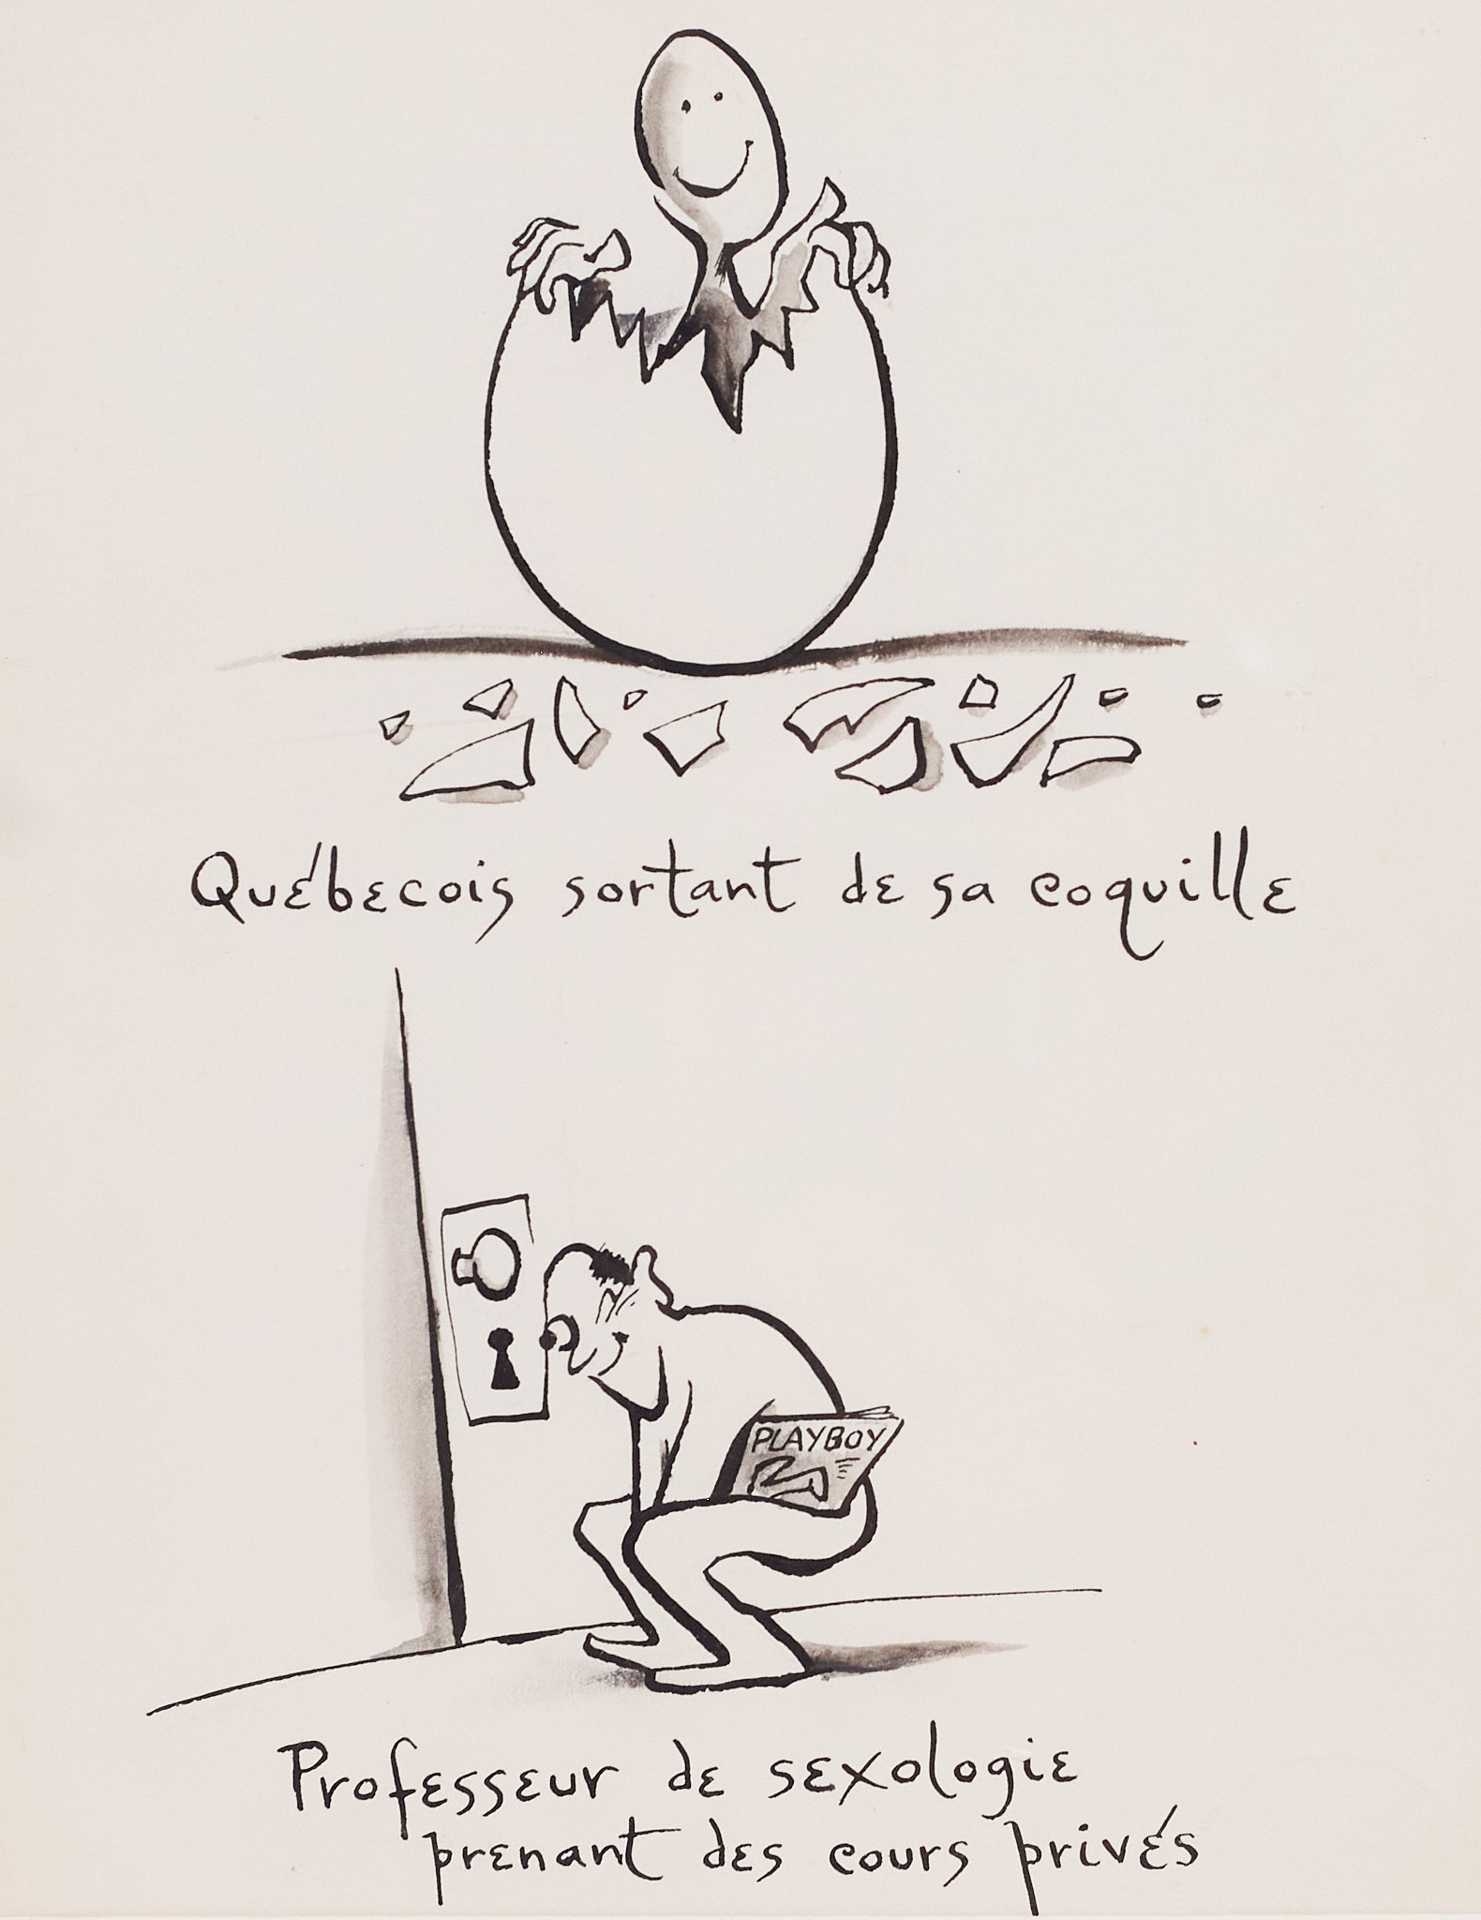 Québecois sortant de sa coquille
PLAYBOY
Professeur de sexologie
prenant des cours privés